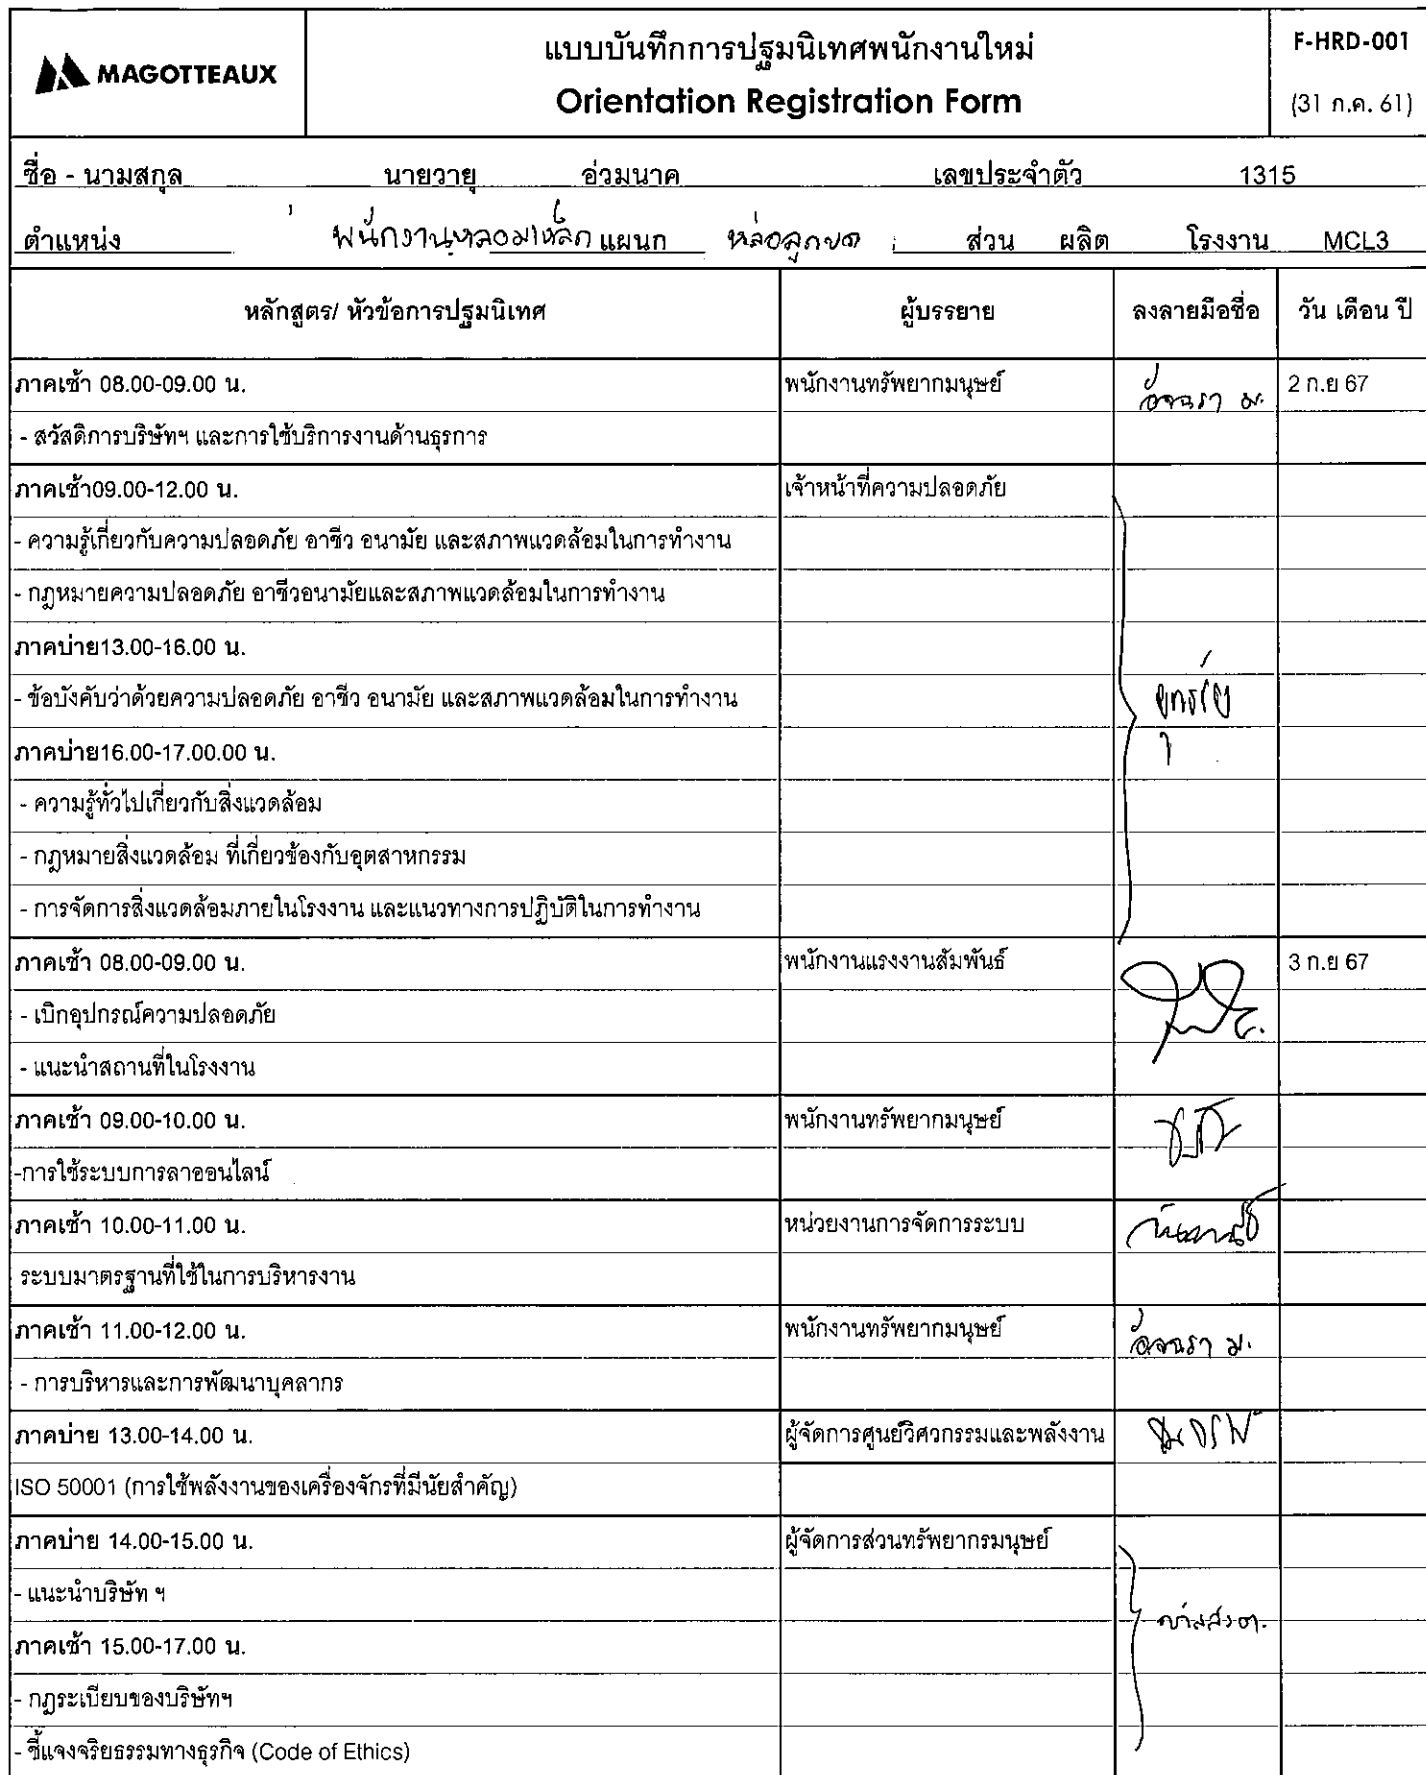 MAGOTTEAUX
แบบบันทึกการปฐมนิเทศพนักงานใหม่
Orientation Registration Form
F-HRD-001
(31 ก.ค. 61)
ชื่อ - นามสกุล นายวายุ อ่วมนาค เลขประจำตัว 1315
ตำแหน่ง พนักงานหลอมเหล็ก แผนก หล่อลูกบด ส่วน ผลิต โรงงาน MCL3
หลักสูตร/ หัวข้อการปฐมนิเทศ ผู้บรรยาย ลงลายมือชื่อ วัน เดือน ปี
ภาคเช้า 08.00-09.00 น. พนักงานทรัพยากมนุษย์ อัจฉรา ม. 2 ก.ย 67
- สวัสดิการบริษัทฯ และการใช้บริการงานด้านธุรการ
ภาคเช้า09.00-12.00 น. เจ้าหน้าที่ความปลอดภัย
- ความรู้เกี่ยวกับความปลอดภัย อาชีว อนามัย และสภาพแวดล้อมในการทำงาน
- กฎหมายความปลอดภัย อาชีวอนามัยและสภาพแวดล้อมในการทำงาน
ภาคบ่าย13.00-16.00 น.
- ข้อบังคับว่าด้วยความปลอดภัย อาชีว อนามัย และสภาพแวดล้อมในการทำงาน
ภาคบ่าย16.00-17.00.00 น.
- ความรู้ทั่วไปเกี่ยวกับสิ่งแวดล้อม
- กฎหมายสิ่งแวดล้อม ที่เกี่ยวข้องกับอุตสาหกรรม
- การจัดการสิ่งแวดล้อมภายในโรงงาน และแนวทางการปฏิบัติในการทำงาน
ภาคเช้า 08.00-09.00 น. พนักงานแรงงานสัมพันธ์ 3 ก.ย 67
- เบิกอุปกรณ์ความปลอดภัย
- แนะนำสถานที่ในโรงงาน
ภาคเช้า 09.00-10.00 น. พนักงานทรัพยากมนุษย์
-การใช้ระบบการลาออนไลน์
ภาคเช้า 10.00-11.00 น. หน่วยงานการจัดการระบบ
ระบบมาตรฐานที่ใช้ในการบริหารงาน
ภาคเช้า 11.00-12.00 น. พนักงานทรัพยากมนุษย์ อัจฉรา ม.
- การบริหารและการพัฒนาบุคลากร
ภาคบ่าย 13.00-14.00 น. ผู้จัดการศูนย์วิศวกรรมและพลังงาน
ISO 50001 (การใช้พลังงานของเครื่องจักรที่มีนัยสำคัญ)
ภาคบ่าย 14.00-15.00 น. ผู้จัดการส่วนทรัพยากรมนุษย์
- แนะนำบริษัท ฯ
ภาคเช้า 15.00-17.00 น.
- กฎระเบียบของบริษัทฯ
- ชี้แจงจริยธรรมทางธุรกิจ (Code of Ethics)